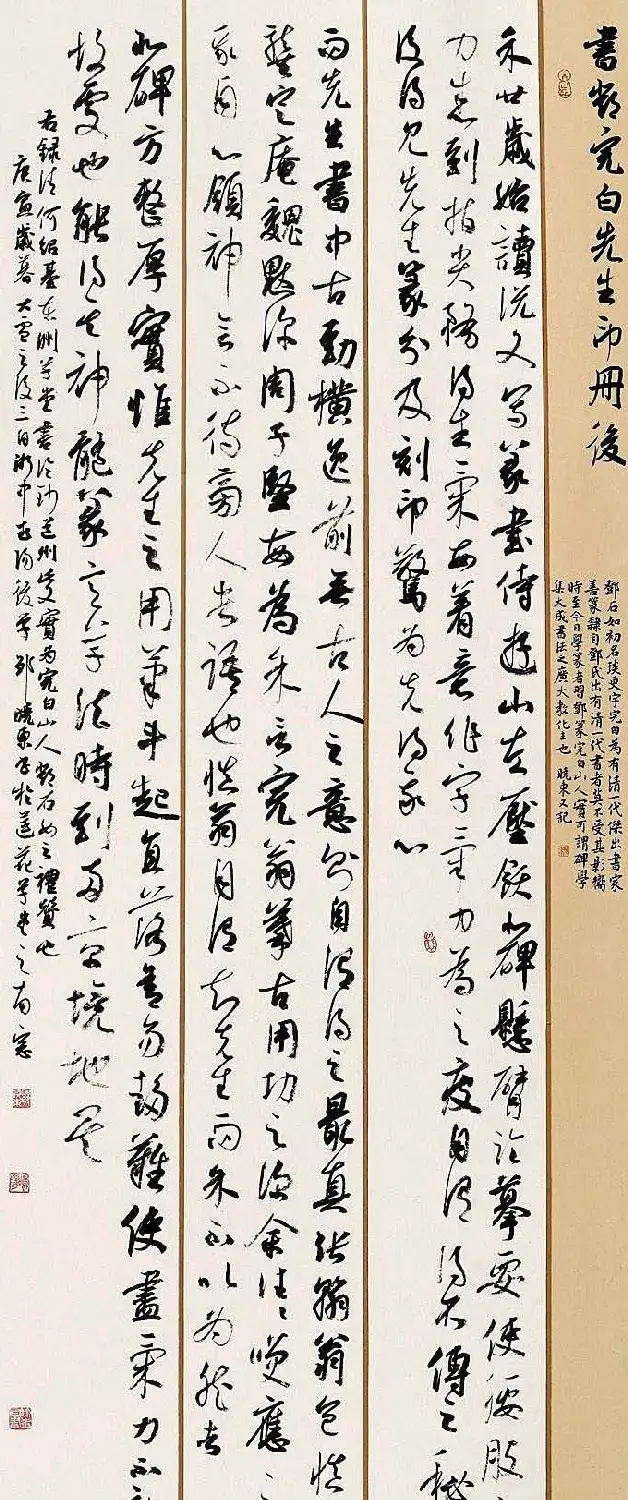 書鄧完白先生印冊後
鄧石如初名琰更字完白為有清一代傑出書家
善篆隸自鄧氏出有清一代書者莫不受其影響
時至今日學篆者習鄧篆完白山人實可謂碑學
集大成書法之廣大教化主也 晓東又記
余廿歲始讀說文寫篆書侍遊山左厭飫北碑懸臂臨摹要使腰股
力悉到指尖務得生氣每着意作字氣力為之疲自謂得不傳之秘
後得見先生篆分及刻印驚為先得我心
而先生書中古勁橫逸前無古人之意則自謂得之最真張翰翁包慎
龔定庵魏默深周子堅每為余言完翁摹古用功之深余往往笑應
我自心領神會不待旁人告語也慎翁自謂知先生而余不以為然者
北碑方整厚實惟先生之用筆斗起直落舍易趨難使盡氣力不離
故處也能得其神龍篆言字法時到兩京境地矣
右錄清何紹基東洲草堂書論鈔道州此文實為完白山人鄧石如之禮贊也
庚寅歲暮大雪之後三日浙中後學邵晓東書於蓮花草堂之南窗